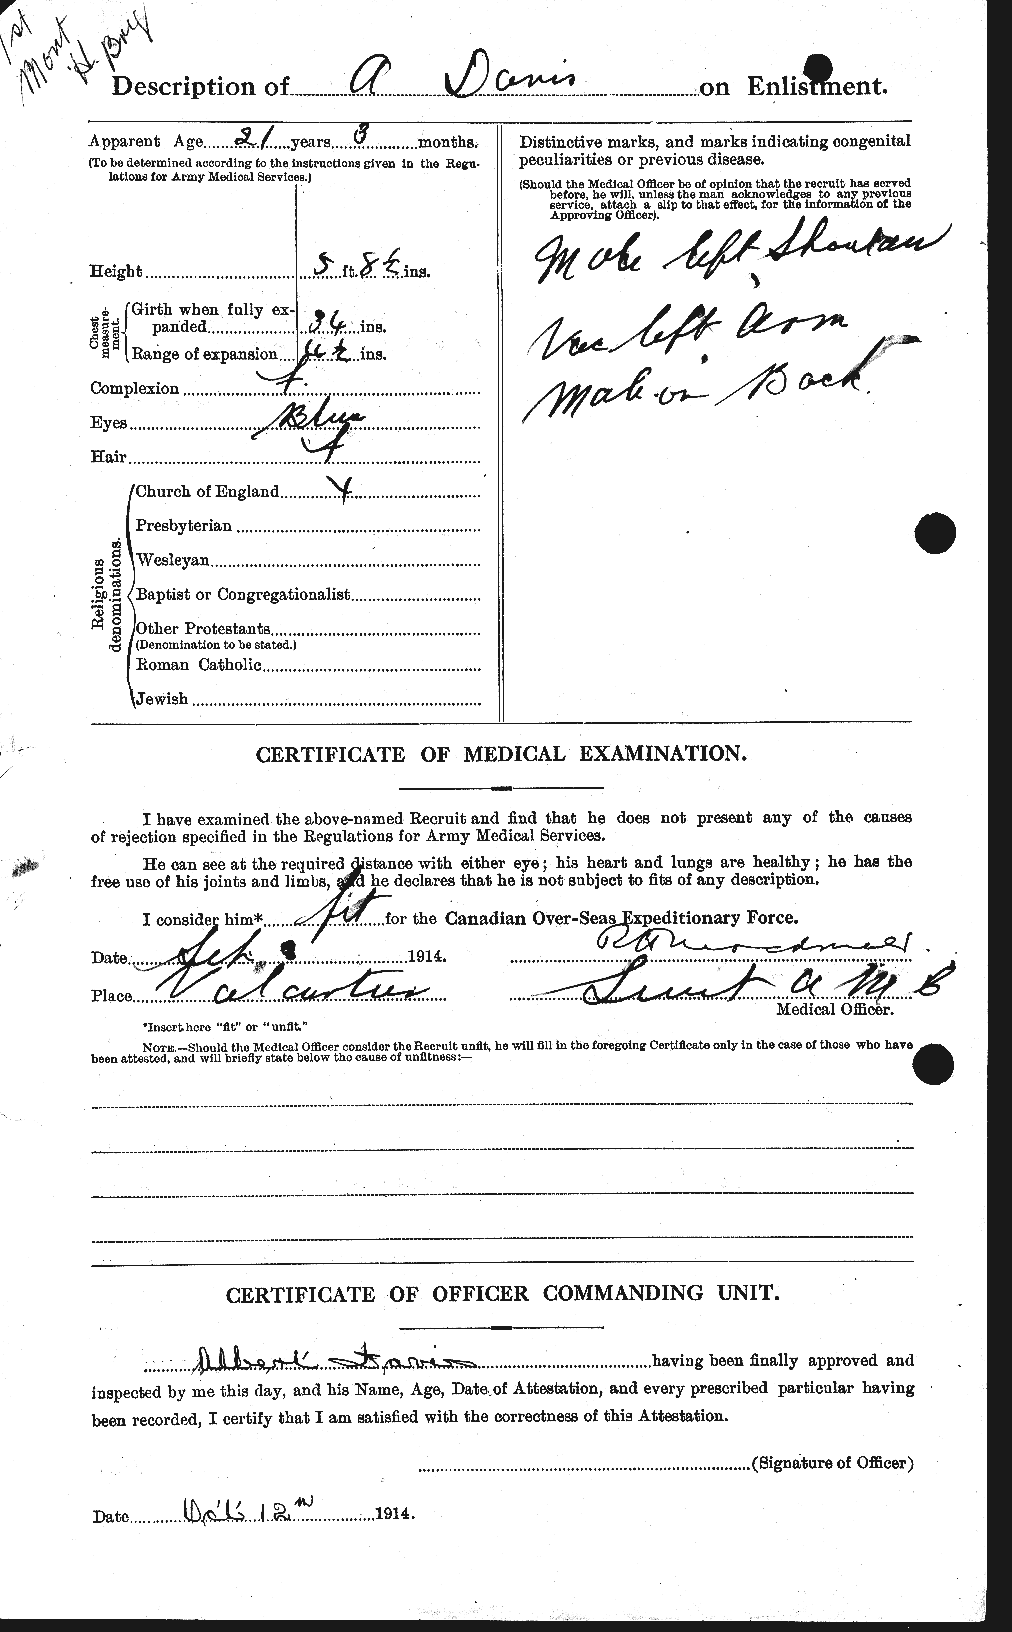 1st
Mont
H. Brig
Description of A Davis on Enlistment.
Apparent Age 21 years 3 months.
(To be determined according to the instructions given in the Regu-
lations for Army Medical Services.)
Height 5 ft. 8½ ins.
Chest measure-ment.
Girth when fully ex-
panded 34 ins.
Range of expansion 4½ ins.
Complexion f.
Eyes Blue
Hair f
Religious denominations.
Church of England Y
Presbyterian
Wesleyan
Baptist or Congregationalist
Other Protestants
(Denomination to be stated.)
Roman Catholic
Jewish
Distinctive marks, and marks indicating congenital
peculiarities or previous disease.
(Should the Medical Officer be of opinion that the recruit has served
before, he will, unless the man acknowledges to any previous
service, attach a slip to that effect, for the information of the
Approving Officer).
Mole left
Vac left Arm
on Back.
CERTIFICATE OF MEDICAL EXAMINATION.
I have examined the above-named Recruit and find that he does not present any of the causes
of rejection specified in the Regulations for Army Medical Services.
He can see at the required distance with either eye; his heart and lungs are healthy; he has the
free use of his joints and limbs, and he declares that he is not subject to fits of any description.
I consider him* fit for the Canadian Over-Seas Expeditionary Force.
Date 1914.
Place Valcartier
Lieut A M
Medical Officer.
*Insert here "fit" or "unfit."
NOTE.—Should the Medical Officer consider the Recruit unfit, he will fill in the foregoing Certificate only in the case of those who have
been attested, and will briefly state below the cause of unfitness:—
CERTIFICATE OF OFFICER COMMANDING UNIT.
Albert Davis having been finally approved and
inspected by me this day, and his Name, Age, Date of Attestation, and every prescribed particular having
been recorded, I certify that I am satisfied with the correctness of this Attestation.
(Signature of Officer)
Date Oct 12 1914.